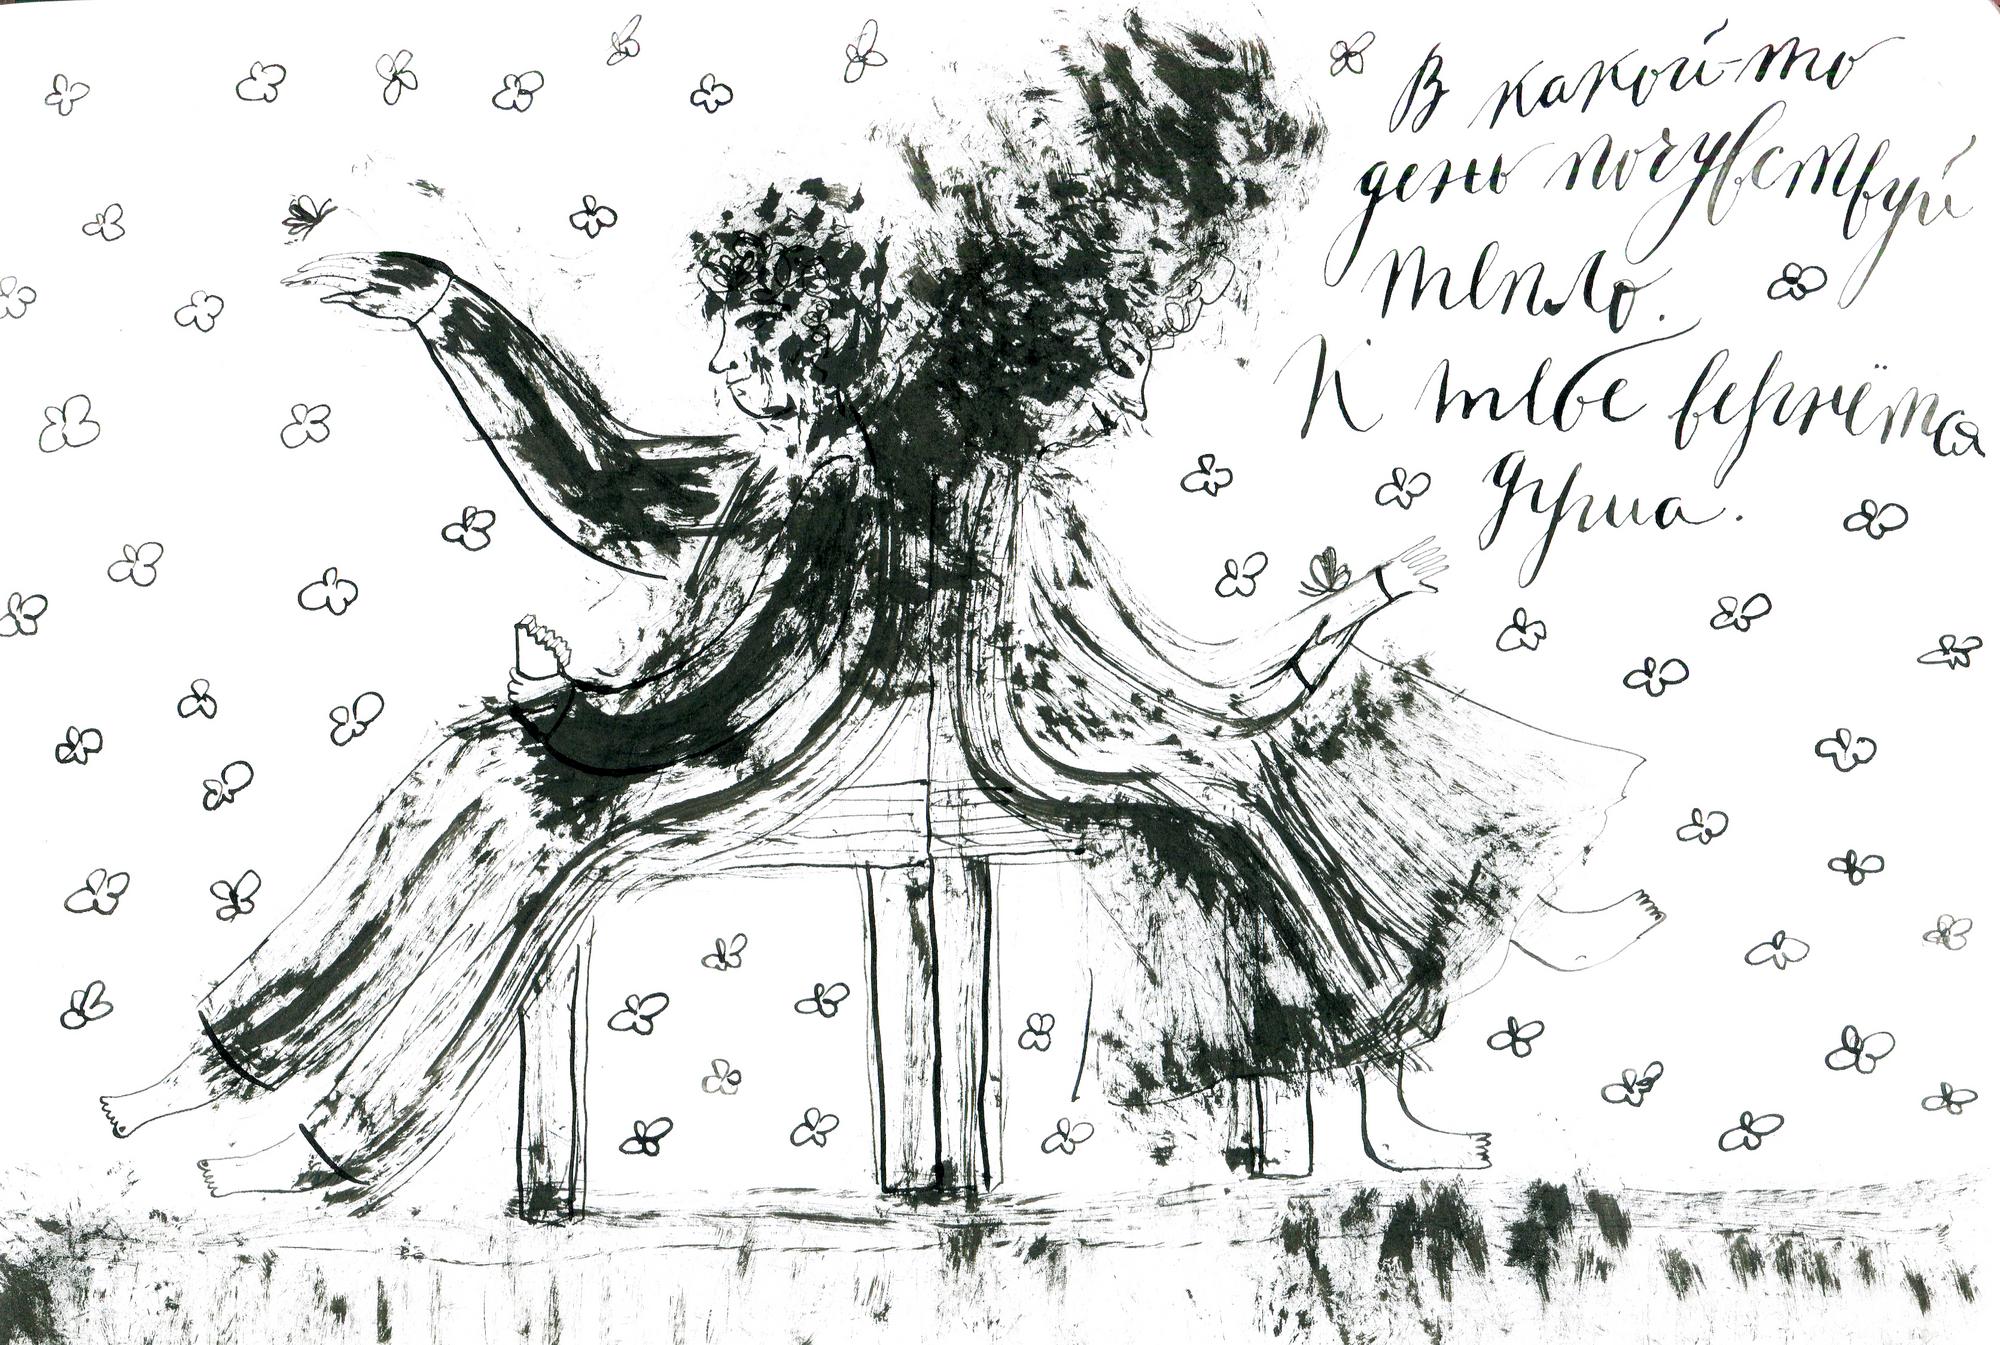 В какой-то
день почувствуй
тепло.
К тебе вернётся
душа.